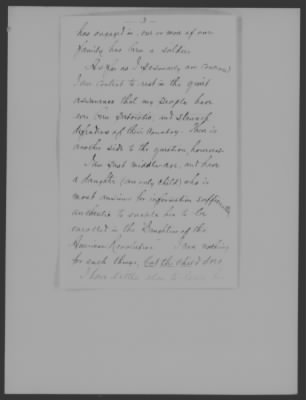 — 3 —
has engaged in, one or more of our
family has been a soldier.
As far as I personally am concerned
I am content to rest in the quiet
assurance that my people have
ever been patriotic, and staunch
defenders of their country. There is
another side to the question, however.
I am past middle age, and have
a daughter (an only child) who is
most anxious for information sufficiently
authentic to enable her to be
enrolled in the "Daughters of the
American Revolution". I care nothing
for such things, but the child does
I have little else to leave her